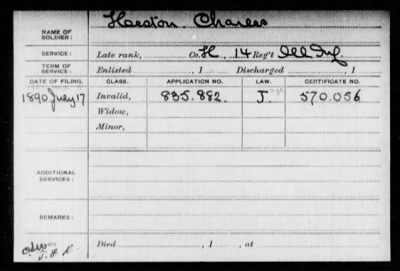 NAME OF SOLDIER: Haeston. Charles
SERVICE: Late rank, Co. H, 14 Reg't Ill Inf
TERM OF SERVICE: Enlisted , 1 Discharged , 1
DATE OF FILING. CLASS. APPLICATION NO. LAW. CERTIFICATE NO.
1890 July 17 Invalid, 835.882. J. 570.056
Widow,
Minor,
ADDITIONAL SERVICES:
REMARKS:
Died , 1 , at